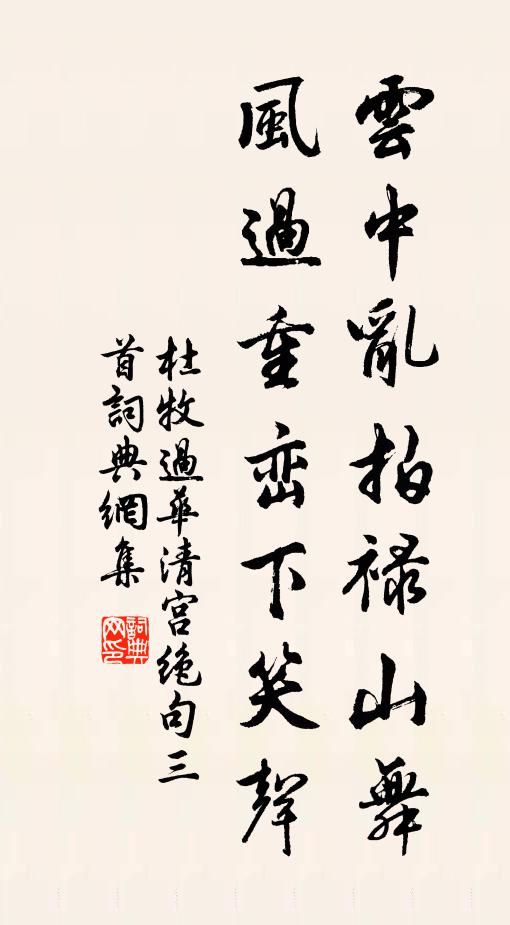 雲中亂拍禄山舞
風過重峦下笑聲
杜牧過華清宫絶句三
首詞典網集
詞典
网印